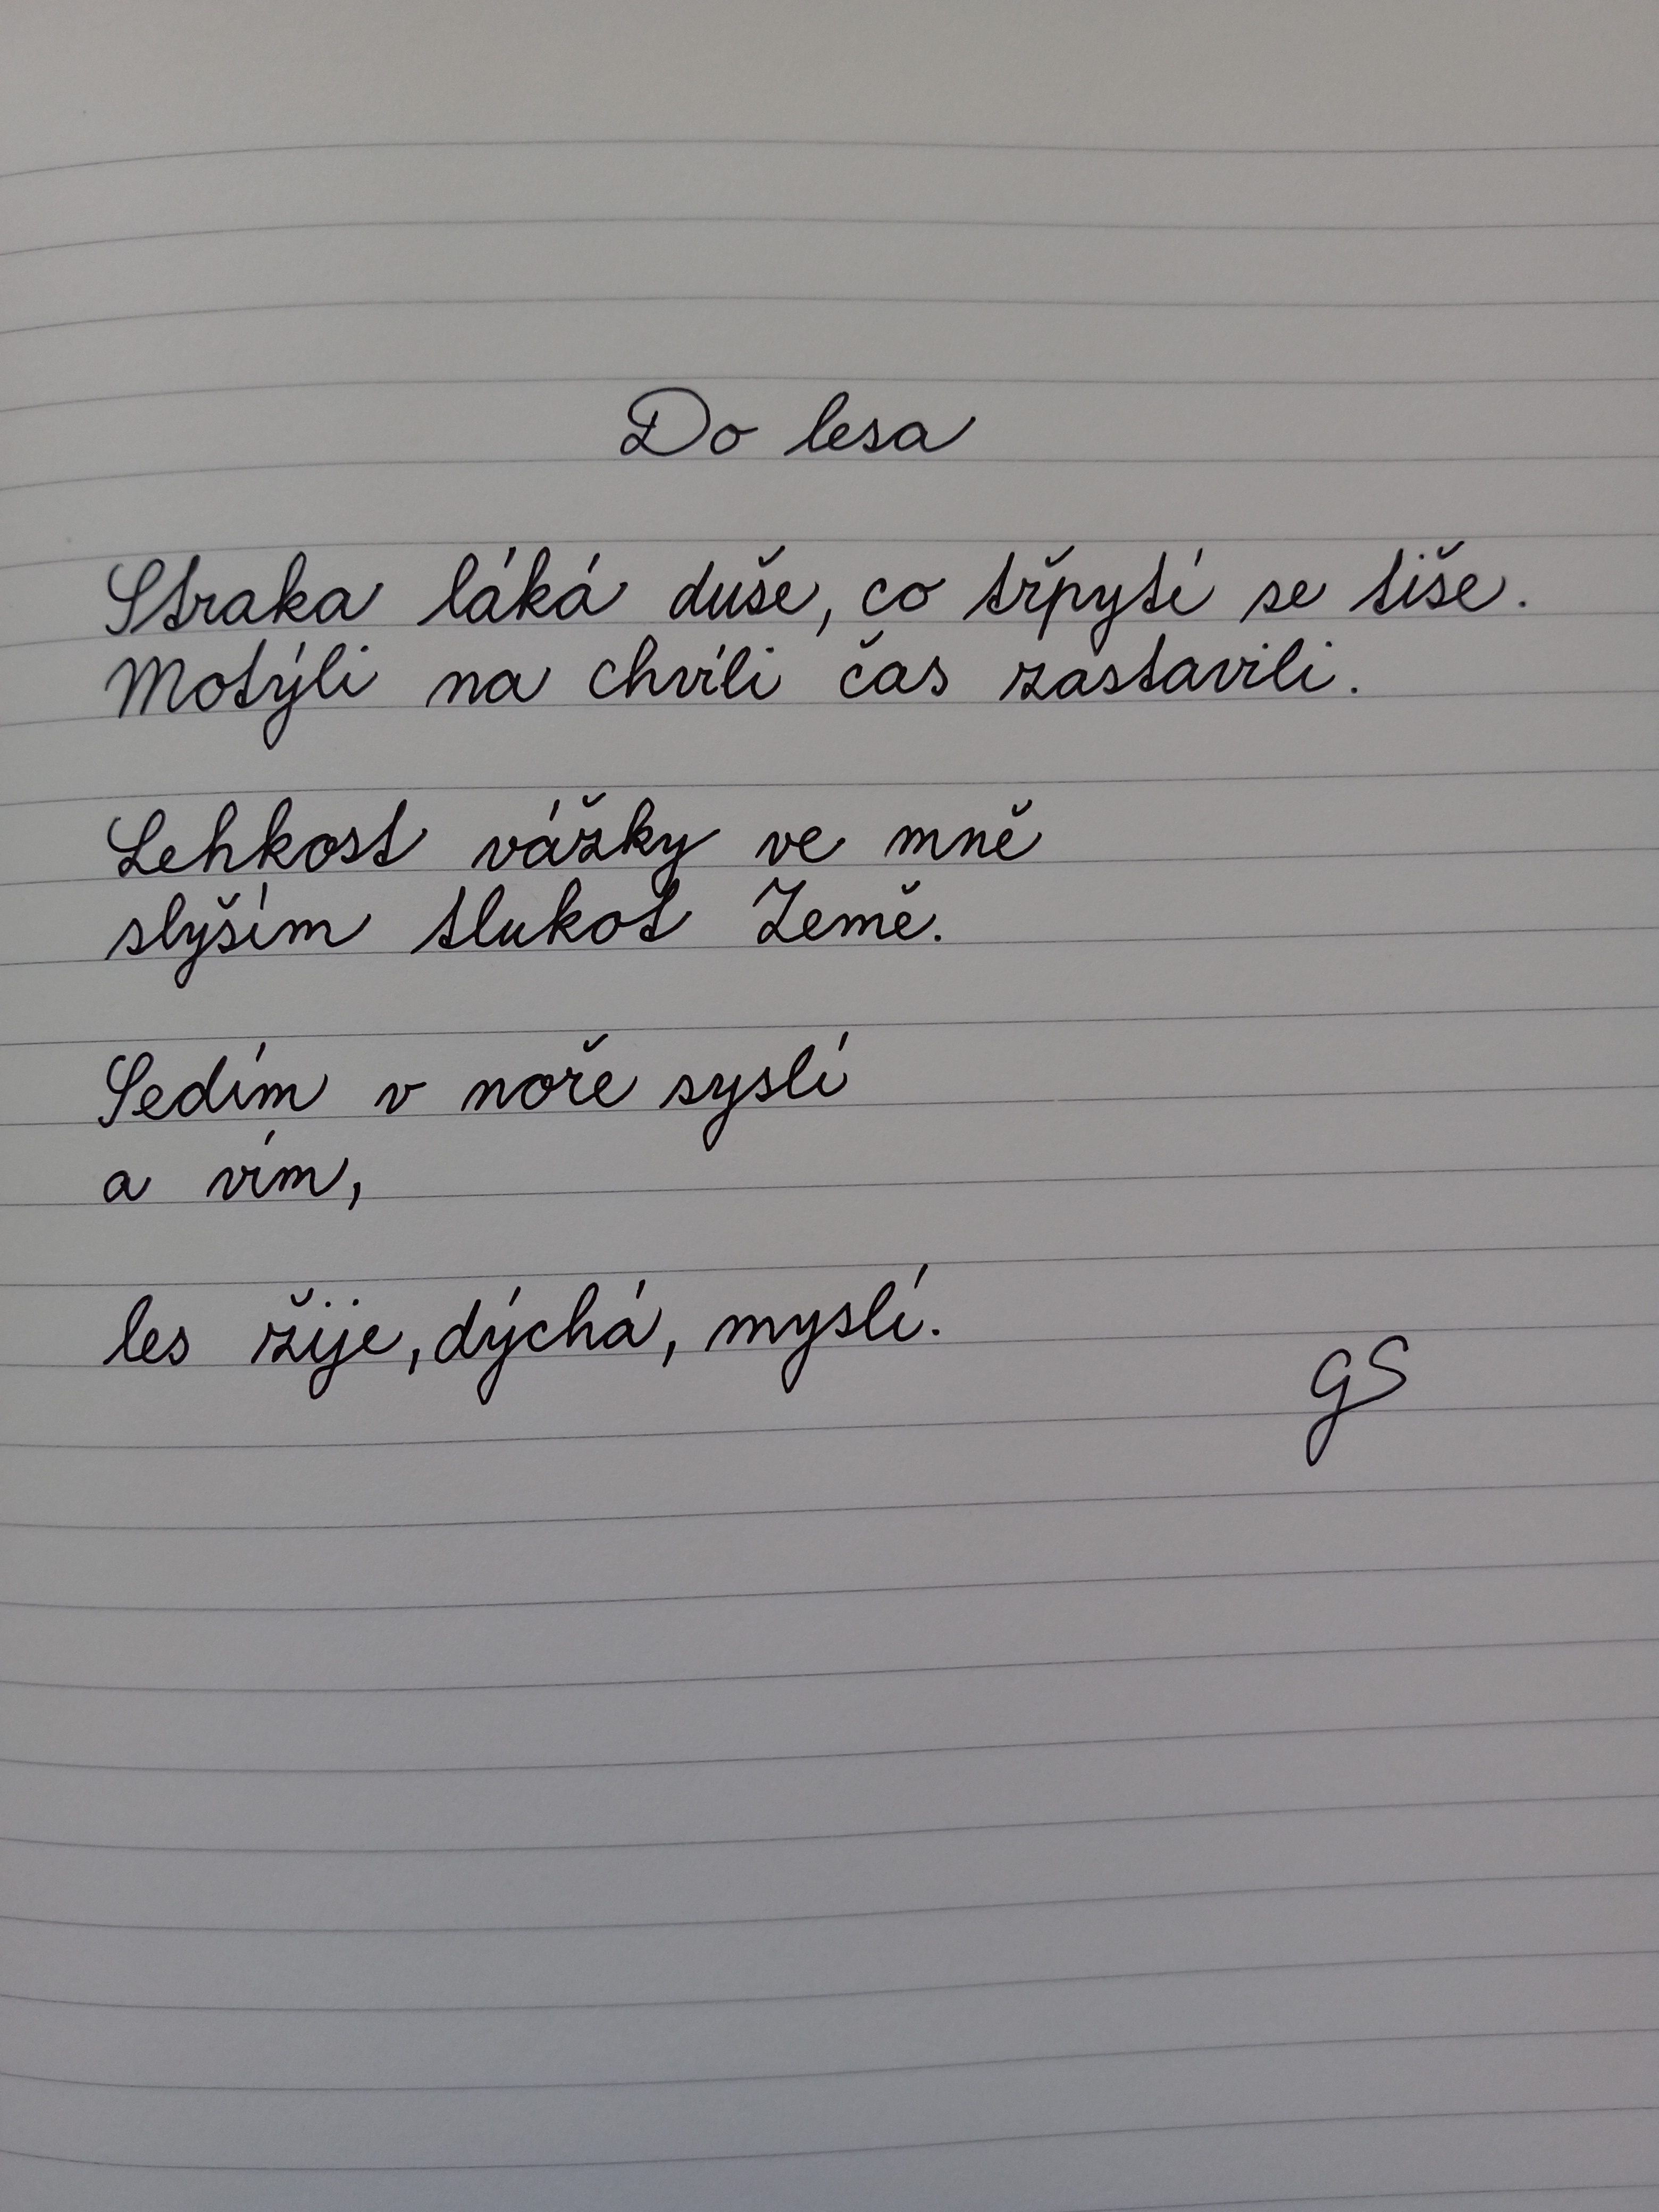 Do lesa
Straka láká duše, co třpytí se tiše.
Motýli na chvíli čas zastavili.
Lehkost vážky ve mně
slyším tlukot Země.
Sedím v noře syslí
a vím,
les žije, dýchá, myslí.
GS